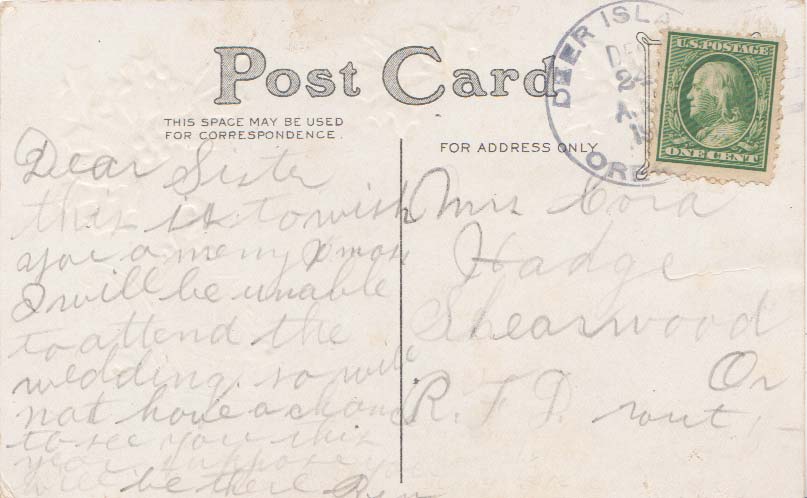 Post Card
THIS SPACE MAY BE USED
FOR CORRESPONDENCE.
FOR ADDRESS ONLY
DEER ISLA
DEC
24
ORE
U.S. POSTAGE
ONE CENT
Dear Sister
this is to wish
you a merry Xmas
I will be unable
to attend the
wedding. so will
not have a chance
to see you this
year suppose you
will be there
Mrs Cora
Hadge
Shearwood
Or
R. F. D. rout 1